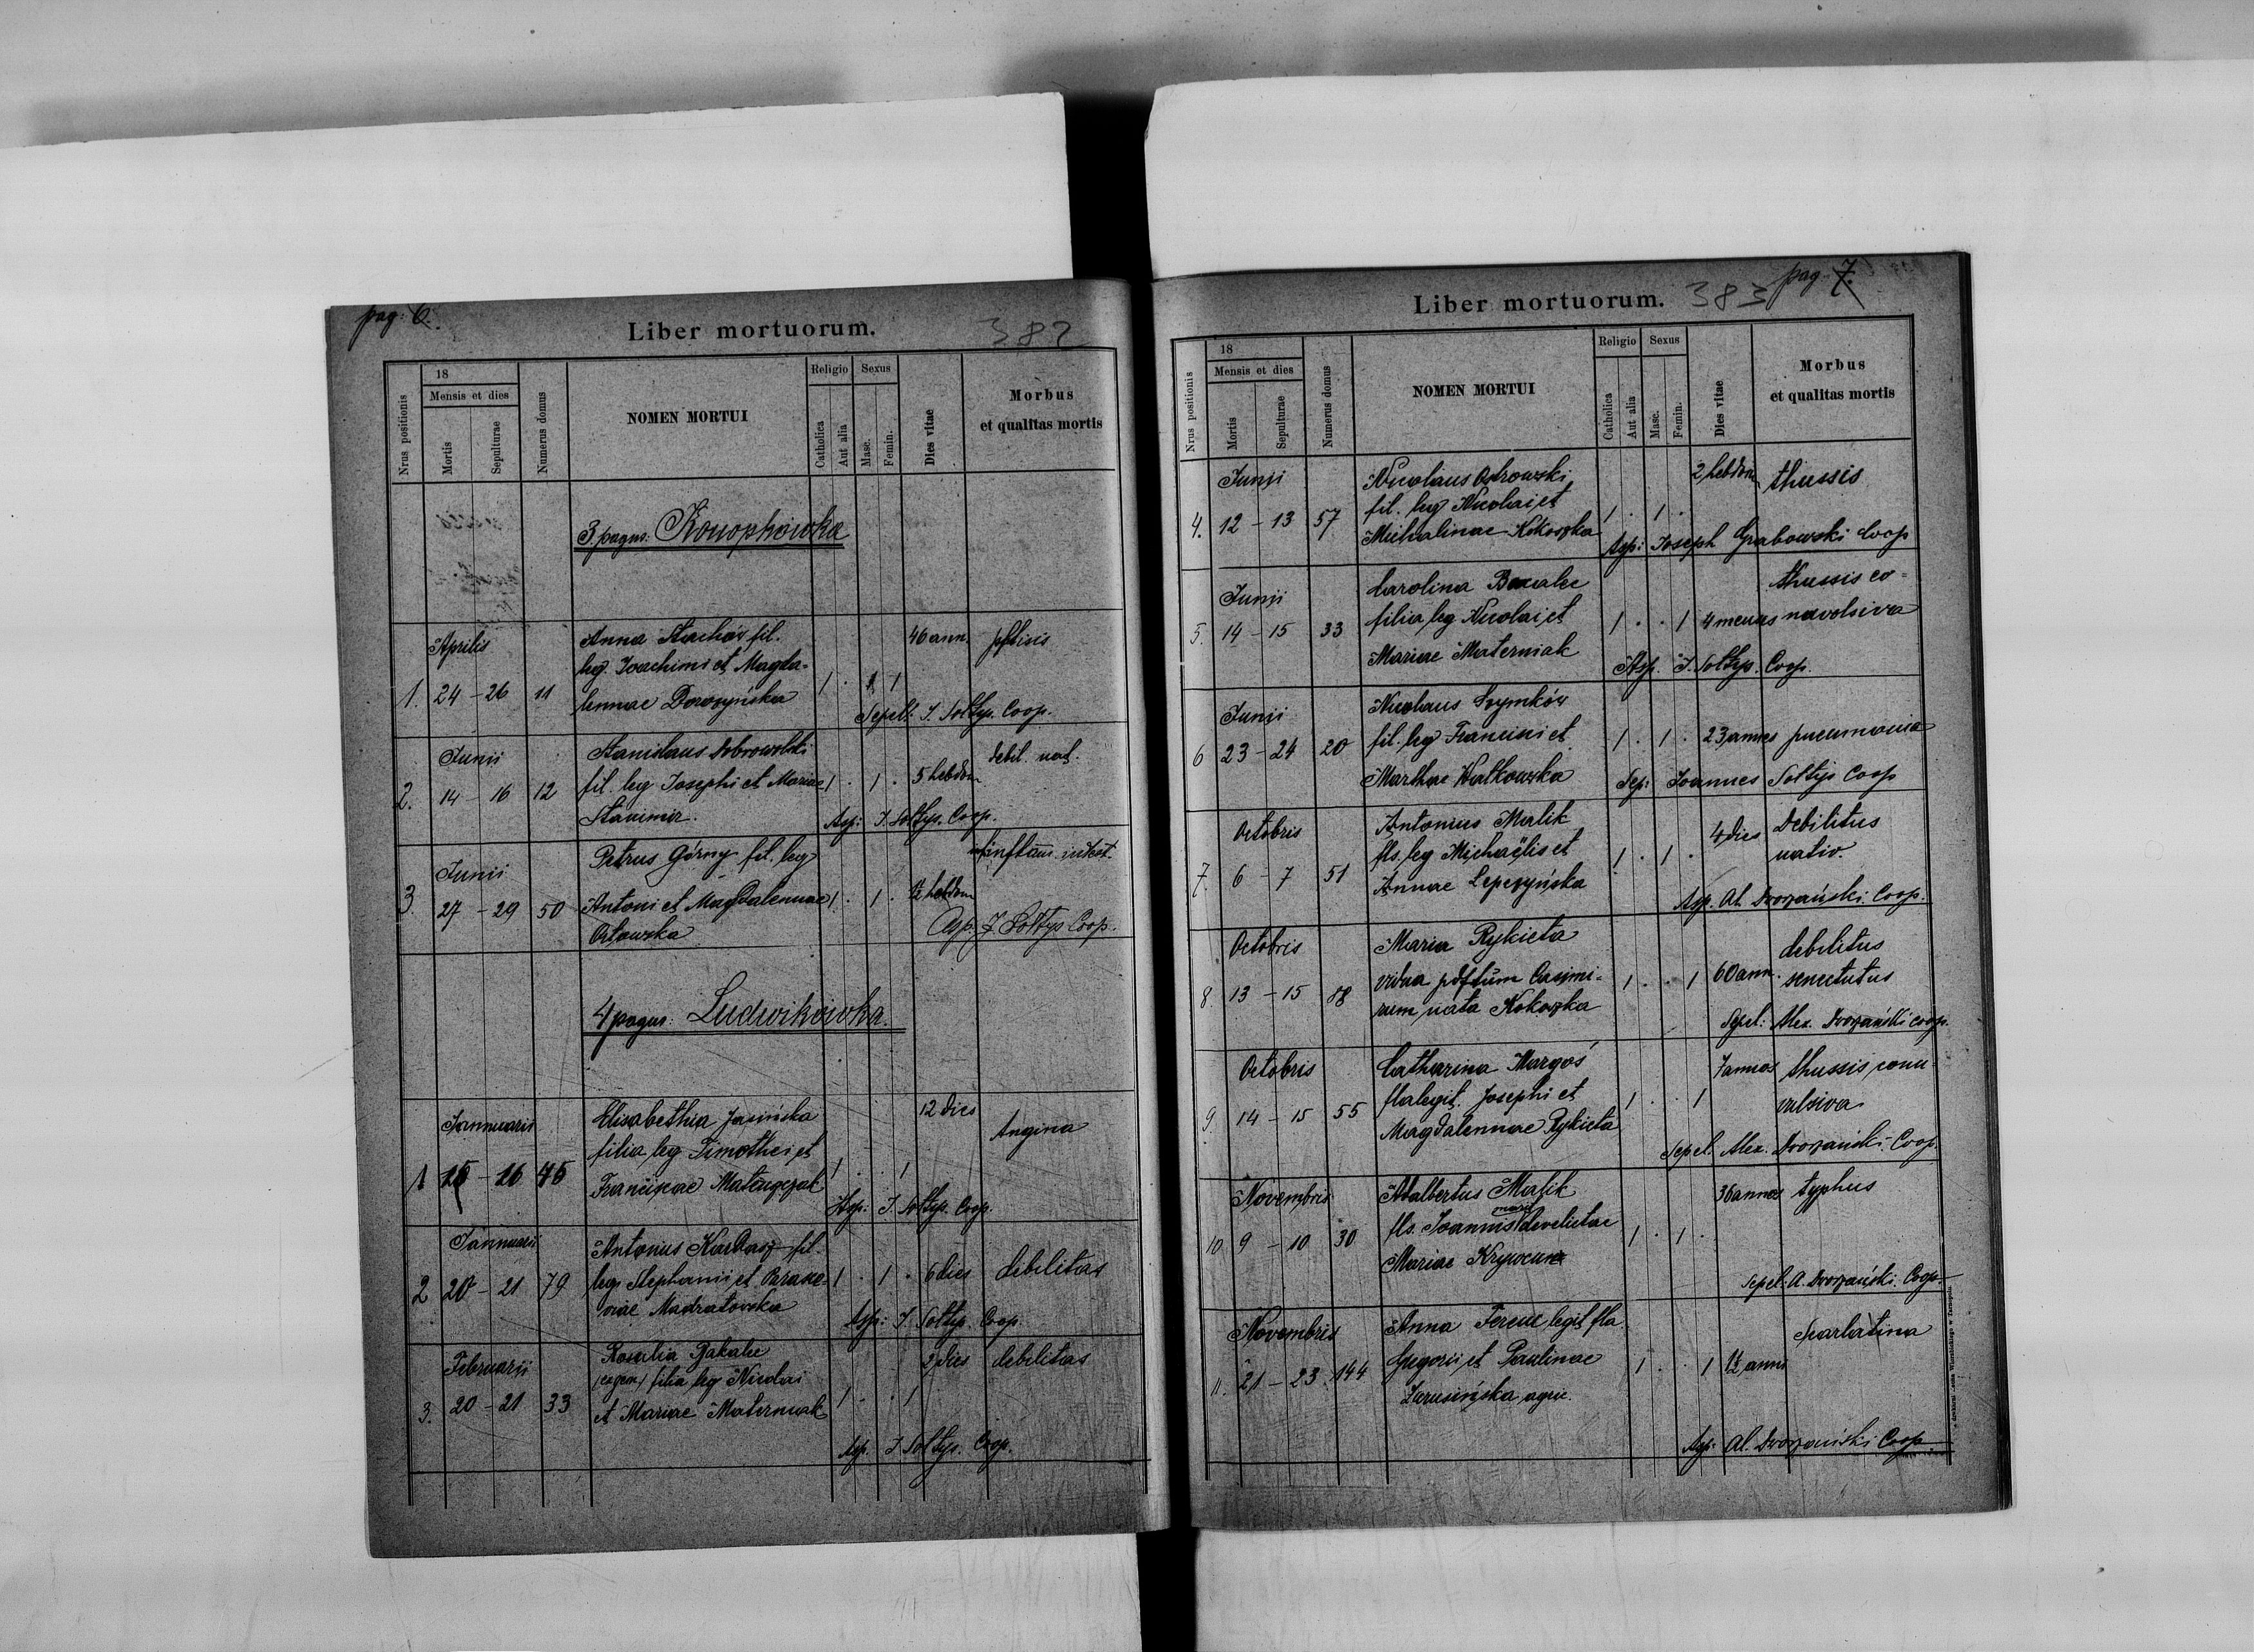 pag: 6.
Liber mortuorum.
382
Nrus positionis
18
Mensis et dies
Mortis
Sepulturae
Numerus domus
NOMEN MORTUI
Religio
Catholica
Aut alia
Sexus
Masc.
Femin.
Dies vitae
Morbus
et qualitas mortis
3. pagus: Konopkówka
Aprilis
1. 24 - 26 11
Anna Stachów fil.
leg. Joachimi et Magda-
lennae
1 . 1
46 ann.
phtisis
Sepel: J. Sołtys. Coop.
Junii
2. 14 - 16 12
Stanislaus Dobrowolski
fil. leg Josephi et Mariae
Stanimir.
1 . 1 .
5 hebdom
debil. nat.
Asp: J. Sołtys. Coop.
Junii
3. 27 - 29 50
Petrus Górny fil. leg
Antoni et Magdalennae
Orłowska
1 . 1 .
1/2 hebdom
inflam. intest.
Asp. J Sołtys Coop.
4 pagus: Ludwikówka.
Jannuarii
1 15 - 16 45
Elisabetha Jasińska
filia leg Timothei et
Franciscae
1 . . 1
12 dies
Angina
Asp: J. Sołtys. Coop.
Jannuarii
2 20 - 21 79
Antonius Kardasz fil.
leg Stephanii et Parasce-
viae
1 . 1 .
6 dies
debilitas
Asp: J. Sołtys. Coop.
Februarii
3. 20 - 21 33
Rosalia Bakalec
(agen) filia leg Nicolai
et Mariae Materniak
1 . . 1
2 dies
debilitas
Asp. J. Sołtys. Coop.
pag. 7.
Liber mortuorum.
383
Nrus positionis
18
Mensis et dies
Mortis
Sepulturae
Numerus domus
NOMEN MORTUI
Religio
Catholica
Aut alia
Sexus
Masc.
Femin.
Dies vitae
Morbus
et qualitas mortis
Junii
4. 12 - 13 57
Nicolaus Ostrowski
fil. leg Nicolai et
Michalinae Kokoszka
1 . 1 .
2 hebdom
thussis
Asp: Joseph Grabowski Coop
Junii
5. 14 - 15 33
Carolina
filia leg Nicolai et
Mariae Materniak
1 . . 1
4 menses
thussis co=
nvolsiva
Asp. J. Sołtys. Coop.
Junii
6 23 - 24 20
Nicolaus Szymków
fil. leg Francisci et
Marthae Walkowska
1 . 1 .
23 annes
pneumonia
Sep: Joannes Sołtys Coop
Octobris
7. 6 - 7 51
Antonius Malik
fls. leg Michaëlis et
Annae Lepczyńska
1 . 1 .
4 dies
Debilitus
nativ.
Asp. Al. Dworzański. Coop.
Octobris
8. 13 - 15 88
Maria Rykieta
vidua Casimi-
rum nata Kokoszka
1 . . 1
60 ann.
debilitus
senectutus
Sepel: Alex. Dworzański coop.
Octobris
9. 14 - 15 55
Catharina Margoś
fla legit. Josephi et
Magdalennae Rykieta
1 . . 1
7 annos
thussis conu-
vulsiva
Sepel. Alex. Dworzański. Coop.
Novembris
10 9 - 10 30
Adalbertus Malik
fls. Joannis derelictae
Mariae
1 . 1 .
36 annos
typhus
Sepel: A. Dworzański. Coop.
Novembris
11. 21 - 23. 144
Anna Ferenc legit fla
Gregorii et Paulinae
Jarusińska agric.
1 . . 1
1 1/2 anni
Scarlatina
Asp: Al. Dworzański Coop.